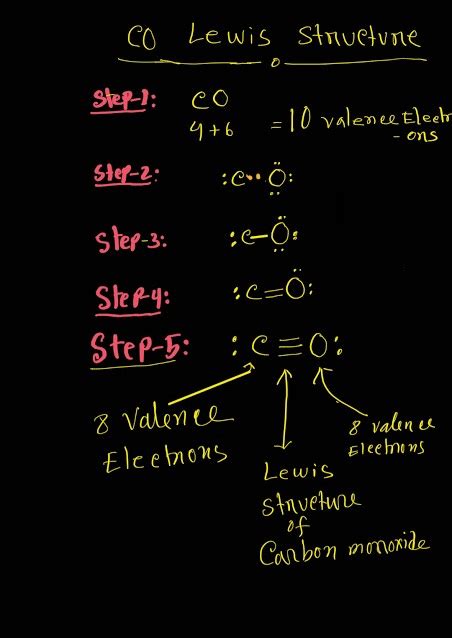 CO Lewis Structure
Step-1: CO
4+6 = 10 valence Electr
-ons
Step-2: :C·· Ö:
Step-3: :C–Ö:
Step-4: :C=Ö:
Step-5: :C≡O:
8 Valence
Electrons
8 valence
Electrons
Lewis
structure
of
Carbon monoxide